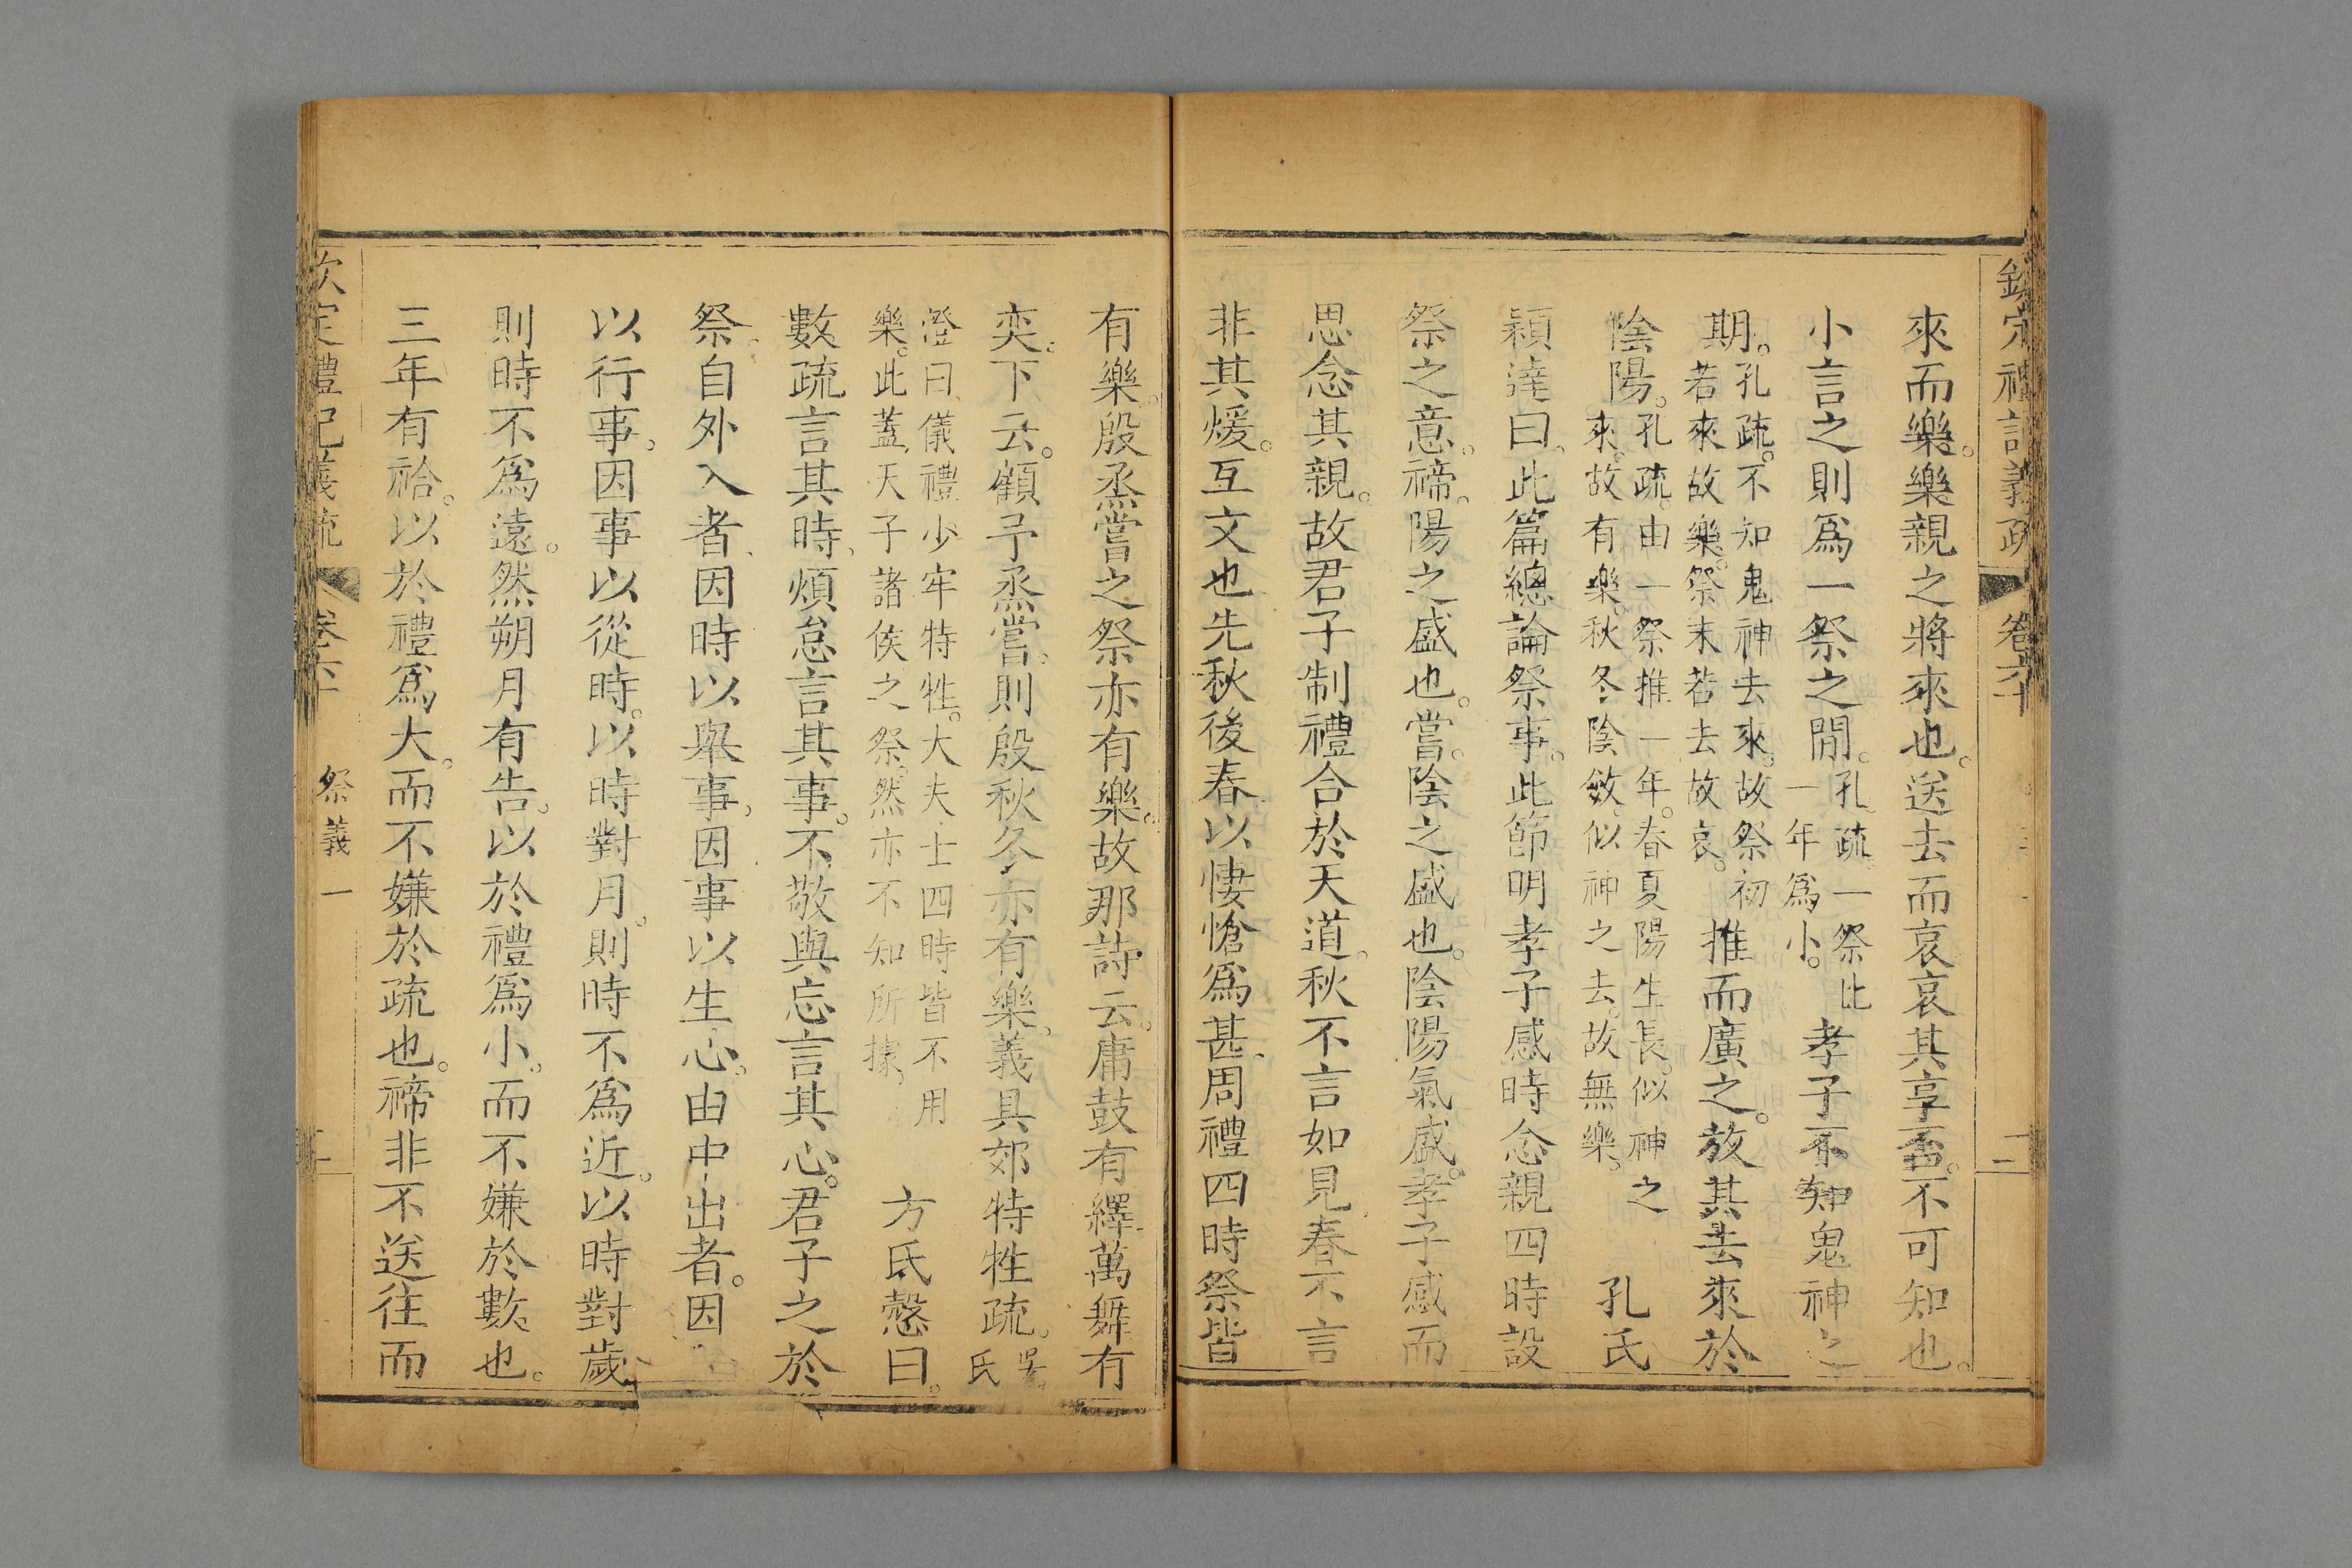 欽定禮記義疏　卷六十　二
來而樂。樂親之將來也。送去而哀。哀其享否。不可知也。
小言之則爲一祭之間。孔疏一祭比一年爲小。孝子不知鬼神之
期。孔疏。不知鬼神去來。故祭初若來故樂。祭末若去故哀。推而廣之。放其去來於
陰陽。孔疏。由一祭推一年。春夏陽生長。似神之來。故有樂。秋冬陰斂。似神之去。故無樂。孔氏
穎達曰、此篇總論祭事。此節明孝子感時念親四時設
祭之意。禘。陽之盛也。嘗。陰之盛也。陰陽氣盛。孝子感而
思念其親。故君子制禮合於天道。秋不言如見春不言
非其煖。互文也先秋後春以悽愴爲甚、周禮四時祭皆
有樂。殷烝嘗之祭亦有樂。故那詩云。庸鼓有繹。萬舞有
奕。下云。顧予烝嘗。則殷秋冬亦有樂。義具郊特牲疏。吳氏
澄曰、儀禮少牢特牲。大夫士四時皆不用樂。此蓋天子諸侯之祭。然亦不知所據。方氏慤曰。
數疏言其時、煩怠言其事。不敬與忘言其心。君子之於
祭。自外入者、因時以舉事、因事以生心。由中出者。因
以行事。因事以從時。以時對月。則時不爲近。以時對歲
則時不爲遠。然朔月有告。以於禮爲小。而不嫌於數也。
三年有祫。以於禮爲大。而不嫌於疏也。禘非不送往而
欽定禮記義疏　卷六十　祭義一　二